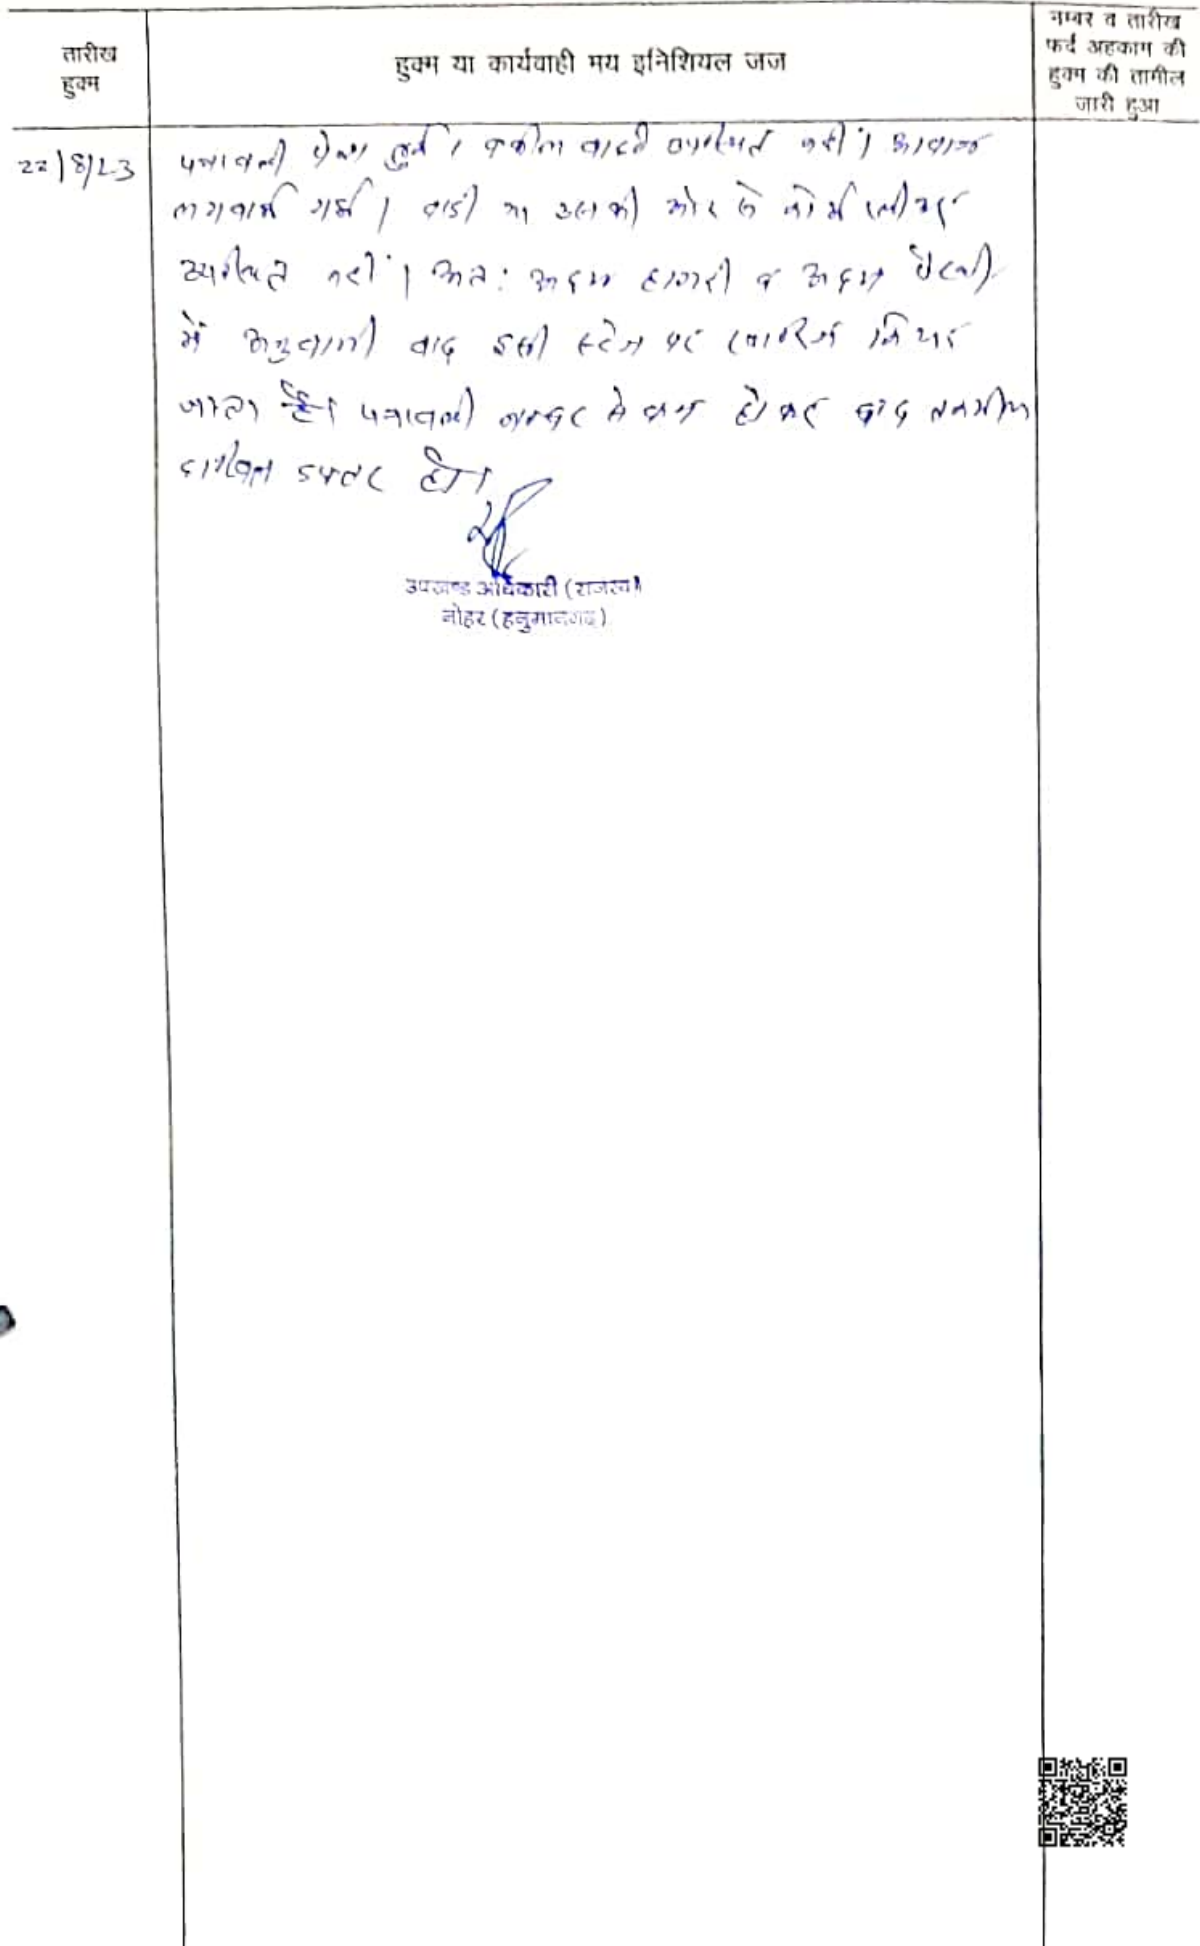 तारीख
हुक्म
हुक्म या कार्यवाही मय इनिशियल जज
नम्बर व तारीख
फर्द अहकाम की
हुक्म की तामील
जारी हुआ
22/8/23
पत्रावली पेश हुई। वकील वादी उपस्थित नहीं। आवाज
लगवाई गई। वादी या उसकी ओर से कोई लीडर
उपस्थित नहीं। अतः अदम हाजरी व अदम पैरवी
में वाद इसी स्टेज पर खारिज किया
जाता है। पत्रावली नम्बर से कम होकर बाद
दाखिल दफ्तर हो।
उपखण्ड अधिकारी (राजस्व)
नोहर (हनुमानगढ़)